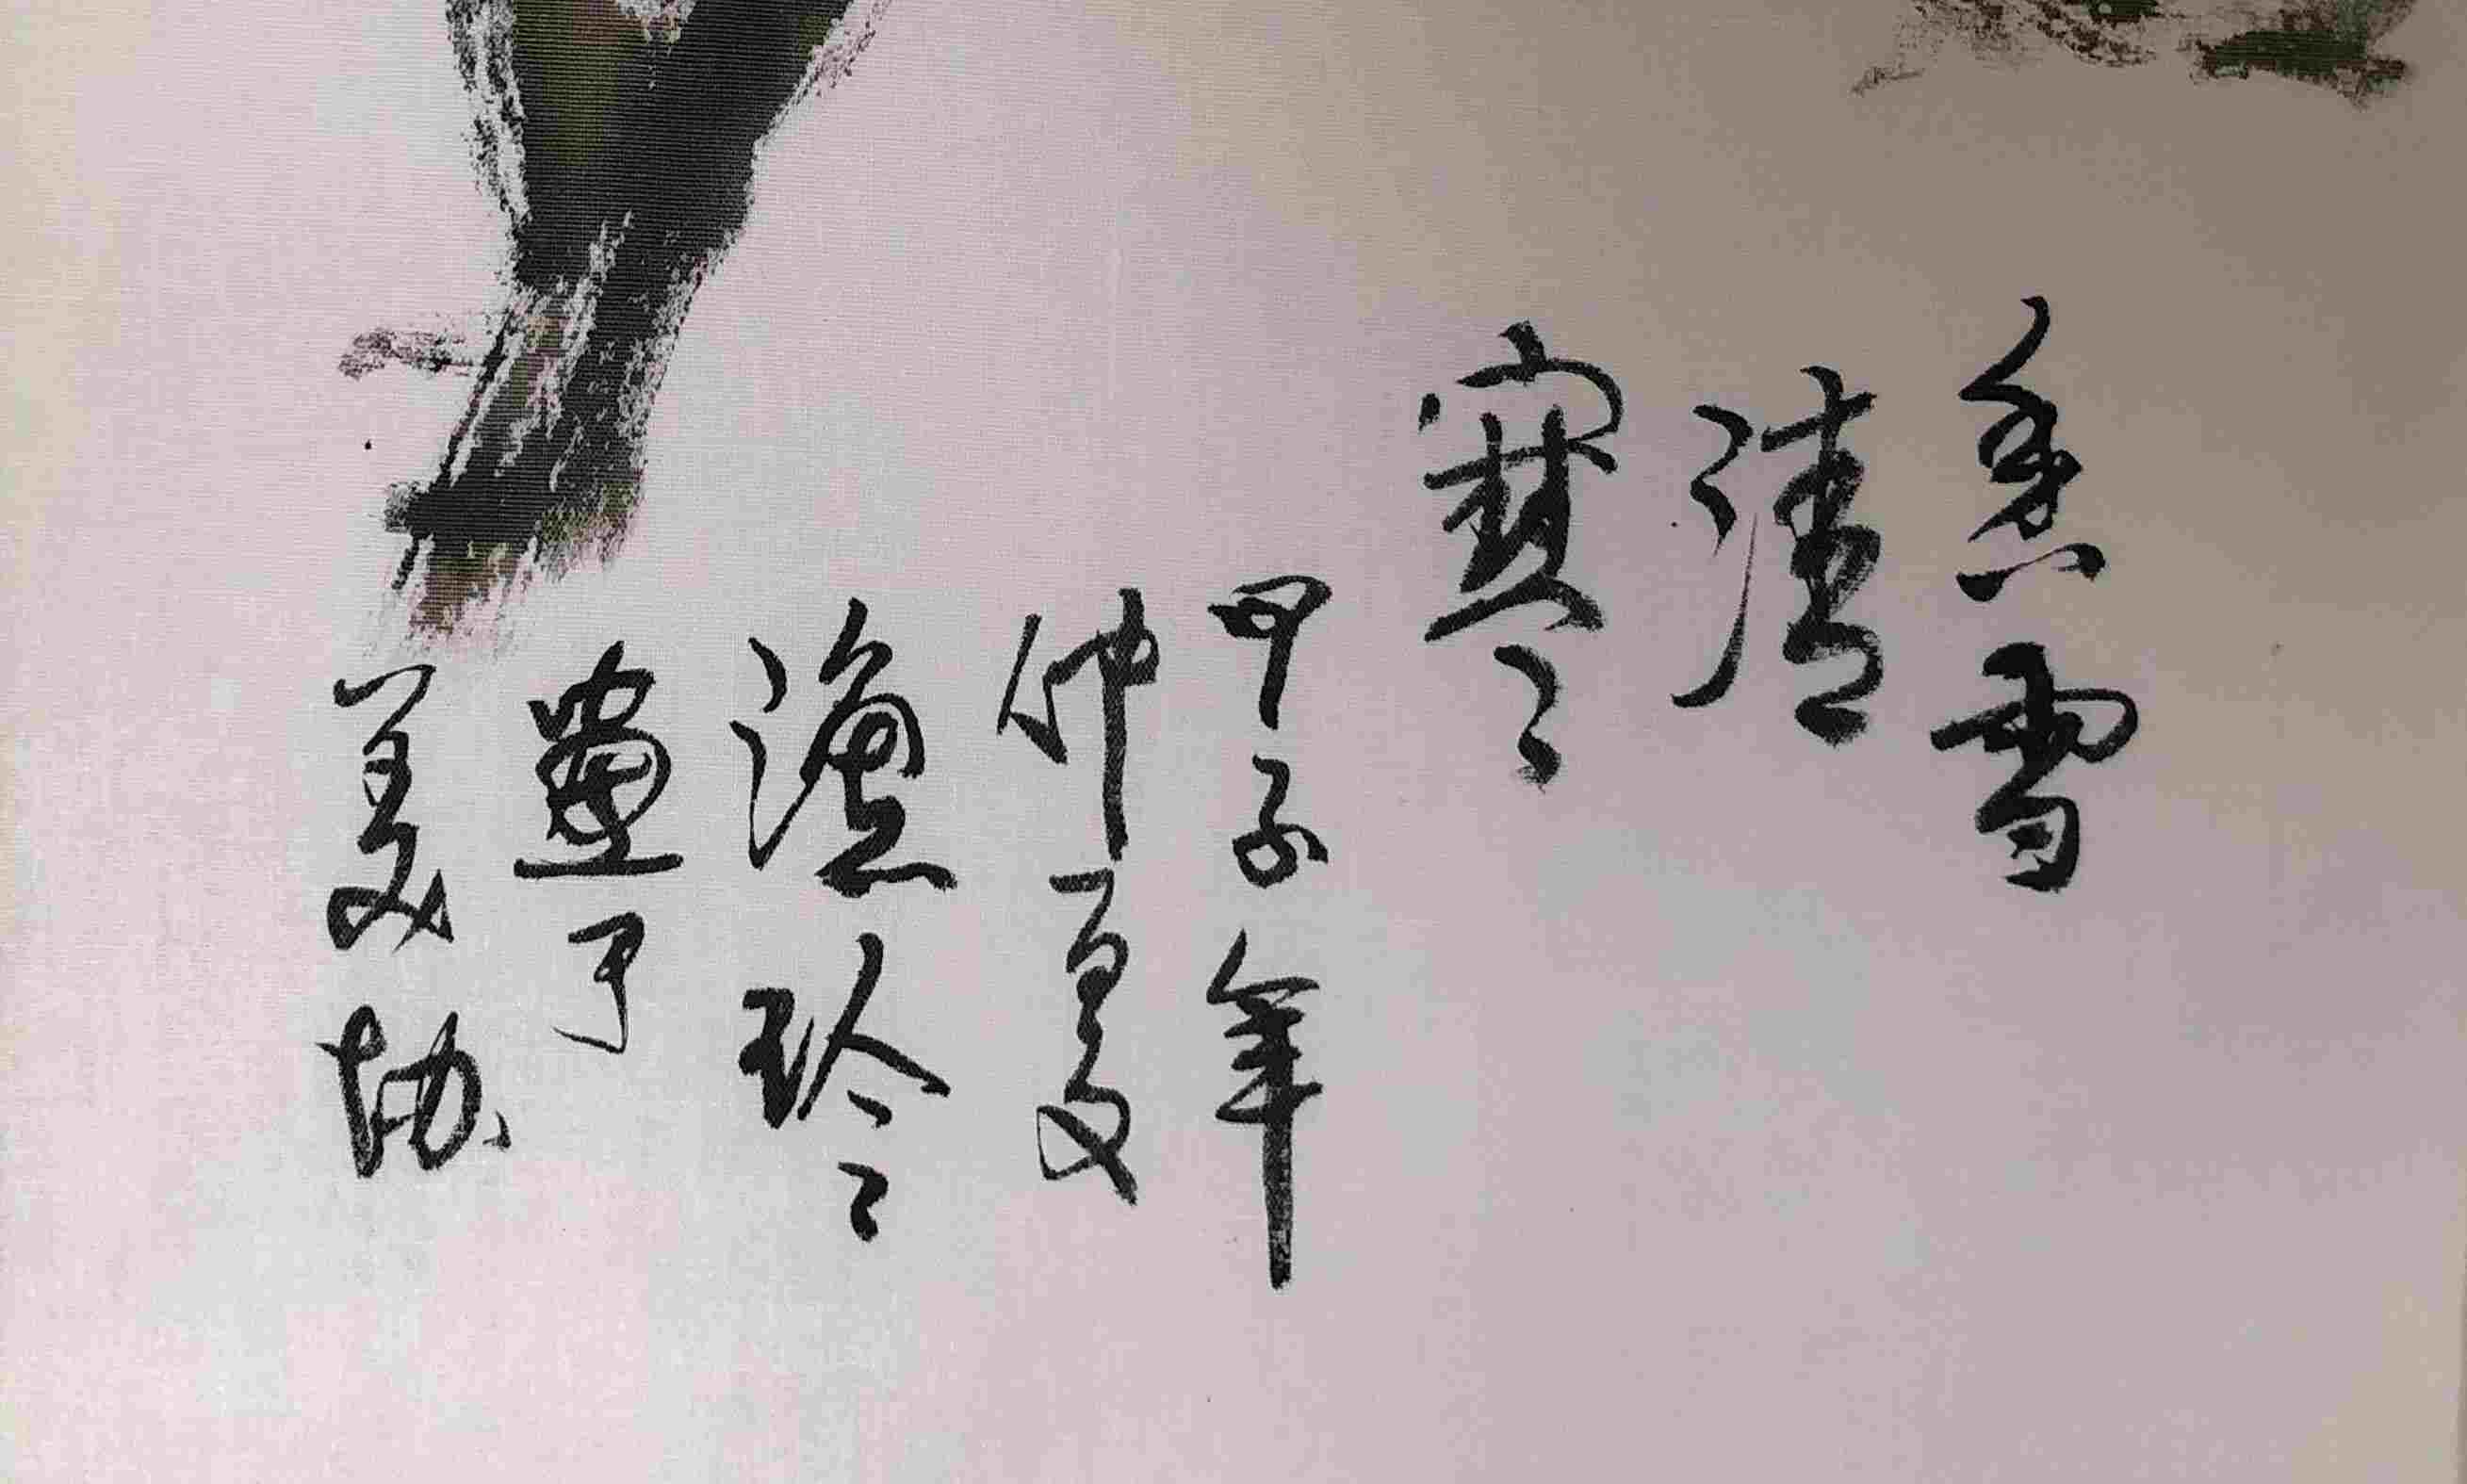 香雪
清
寒
甲子年
仲夏
漁玲
畫于
美协